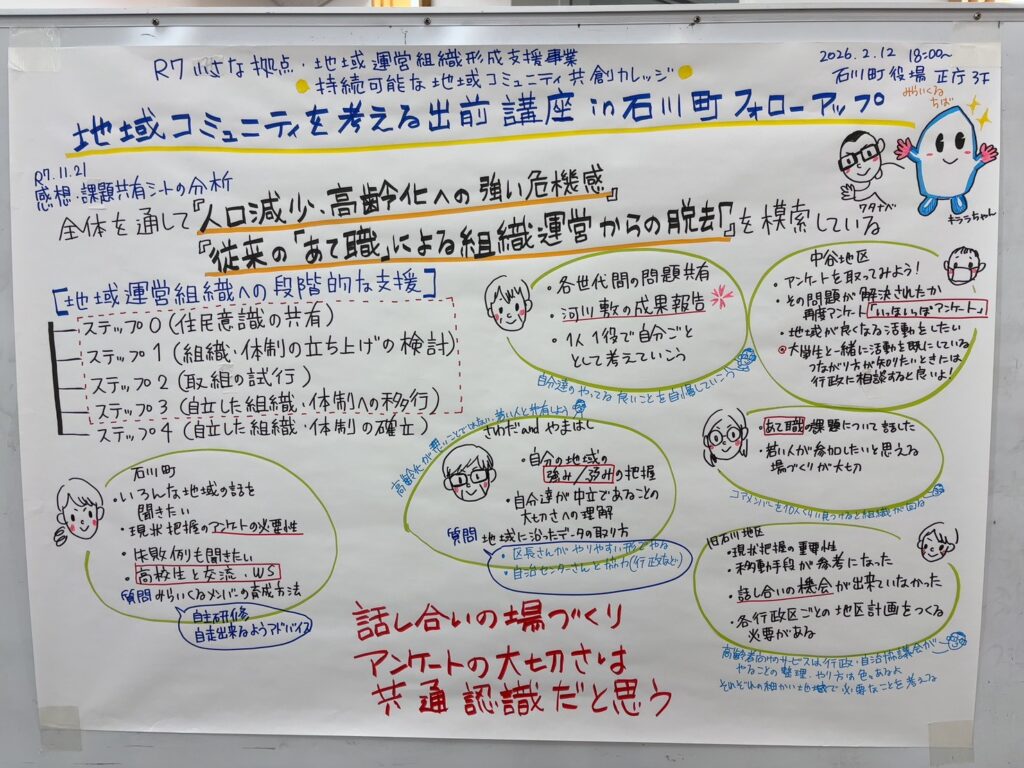 R7 小さな拠点・地域運営組織形成支援事業
持続可能な地域コミュニティ共創カレッジ
地域コミュニティを考える出前講座 in 石川町フォローアップ
2026.2.12 18:00〜
石川町役場 正庁3F
みらいくる
ちば
ワタナベ
キララちゃん
R7.11.21
感想・課題共有シートの分析
全体を通して『人口減少、高齢化への強い危機感』
『従来の「あて職」による組織運営からの脱去』を模索している
[地域運営組織への段階的な支援]
ステップ0(住民意識の共有)
ステップ1(組織・体制の立ち上げの検計)
ステップ2(取組の試行)
ステップ3(自立した組織・体制への移行)
ステップ4(自立した組織・体制の確立)
・各世代間の問題共有
・河川敷の成果報告
・1人1役で自分ごと
として考えていこう
自分達のやってる良いことを自慢していこう
中谷地区
・アンケートを取ってみよう!
・その問題が解決されたか
再度アンケート「いっぽいっぽアンケート」
・地域が良くなる活動をしたい
・大学生と一緒に活動を既にしている
つながり方が知りたいときには
行政に相談すると良いよ!
石川町
・いろんな地域の話を
聞きたい
・現状把握のアンケートの必要性
・失敗例も聞きたい
・高校生と交流、WS
質問 みらいくるメンバーの育成方法
自主研修
自走出来るようアドバイス
高齢化が悪いことではない、若い人と共有しよう
さわだ and やまはし
・自分の地域の
強み/弱みの把握
・自分達が中立であることの
大切さへの理解
質問 地域に沿ったデータの取り方
・区長さんがやりやすい形でやる
・自治センターさんと
(行政など)
・あて職の課題について話した
・若い人が参加したいと思える
場づくりが大切
コアメンバーを10人くらい見つけると組織が回る
旧石川地区
・現状把握の重要性
・移動手段が参考になった
・話し合いの機会が出来ていなかった
・各行政区ごとの地区計画をつくる
必要がある
高齢者向けのサービスは行政・自治協議会が
やることの整理、やり方は色々あるよ
それぞれの細かい地域で必要なことを考える
話し合いの場づくり
アンケートの大切さは
共通認識だと思う